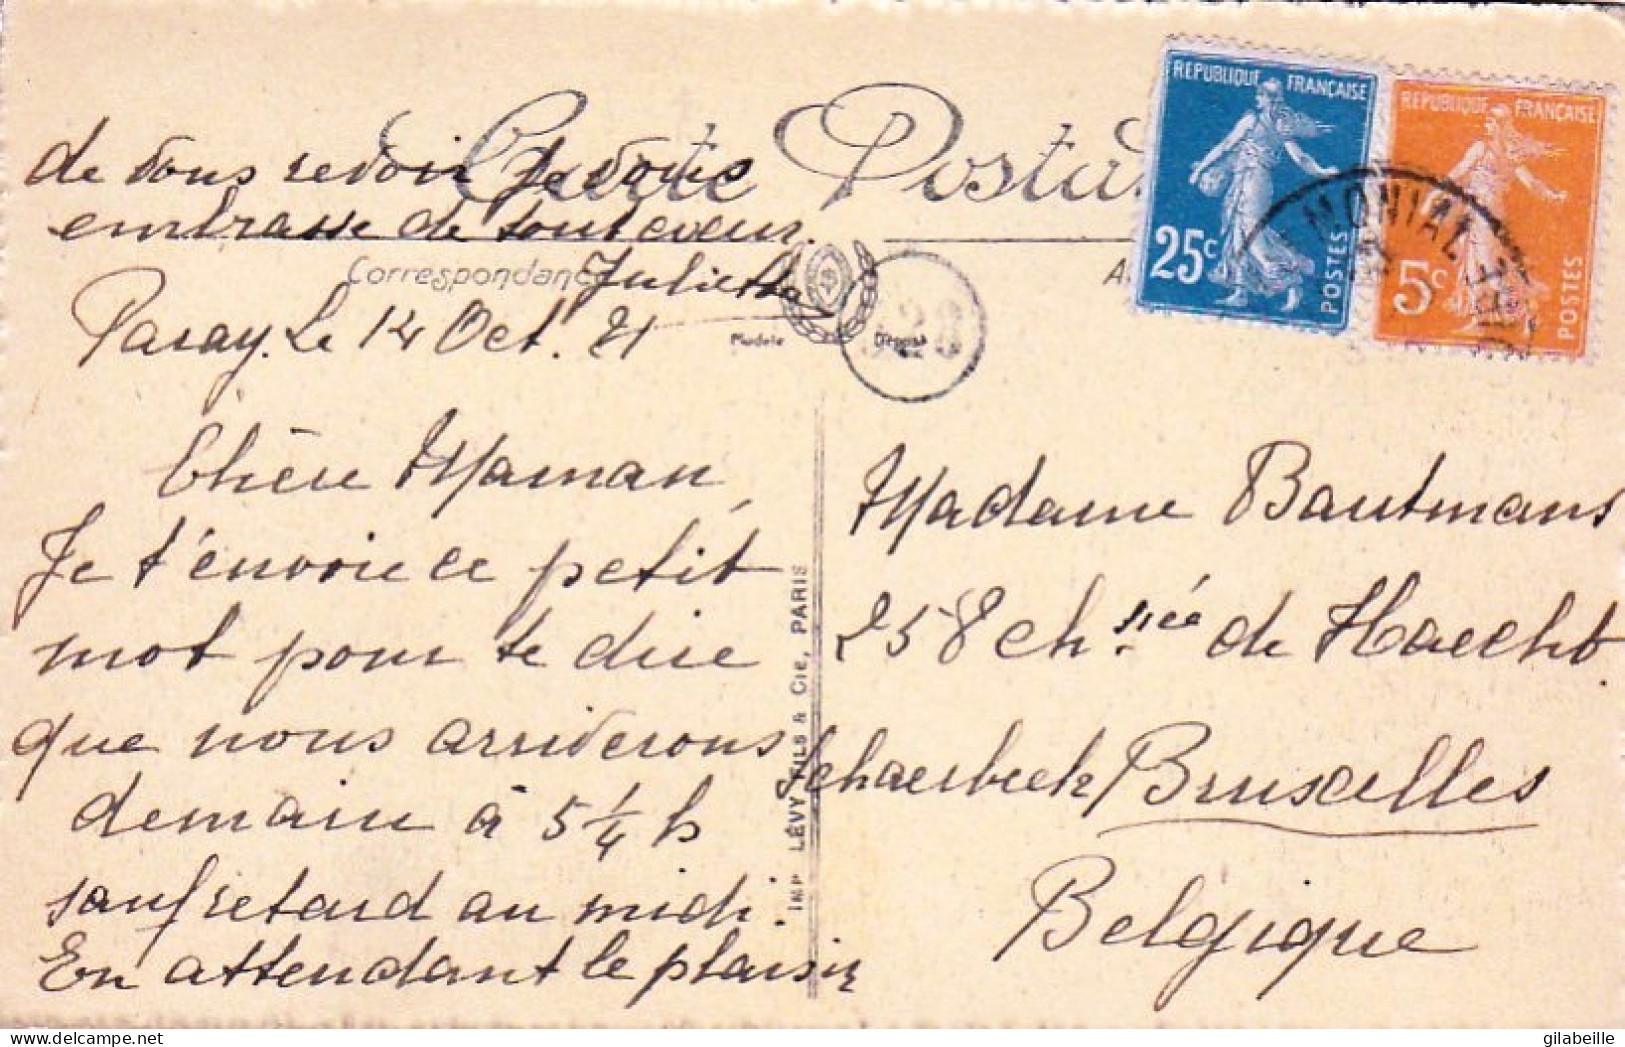 Carte Postale
de vous revoir je vous
embrasse de tout coeur.
Correspondance
Juliette
Paray. Le 14 Oct. 21
Modèle Déposé
Chère Maman,
Je t'envoie ce petit
mot pour te dire
que nous arriverons
demain à 5 1/4 h
sauf retard au midi.
En attendant le plaisir
IMP. LÉVY FILS & Cie, PARIS
REPUBLIQUE FRANÇAISE
25c
POSTES
REPUBLIQUE FRANÇAISE
5c
POSTES
MONIAL
Madame Bautmans
258 ch.ssée de Haecht.
Schaerbeek Bruxelles
Belgique
gilabeille